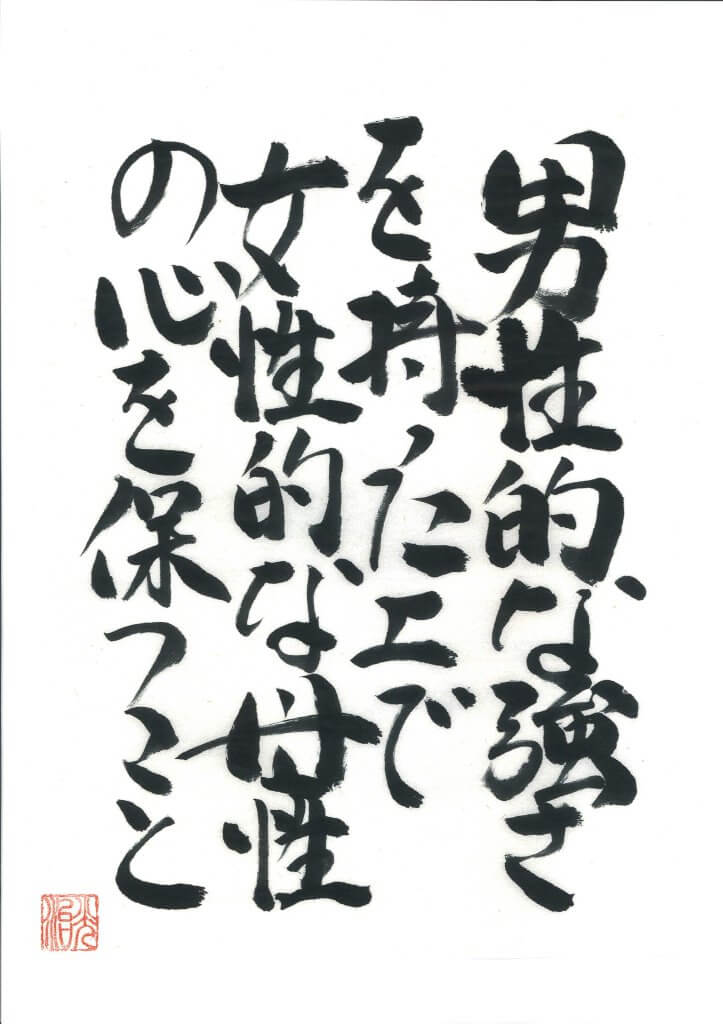 男性的な強さ
を持た上で
女性的な母性
の心を保つこと